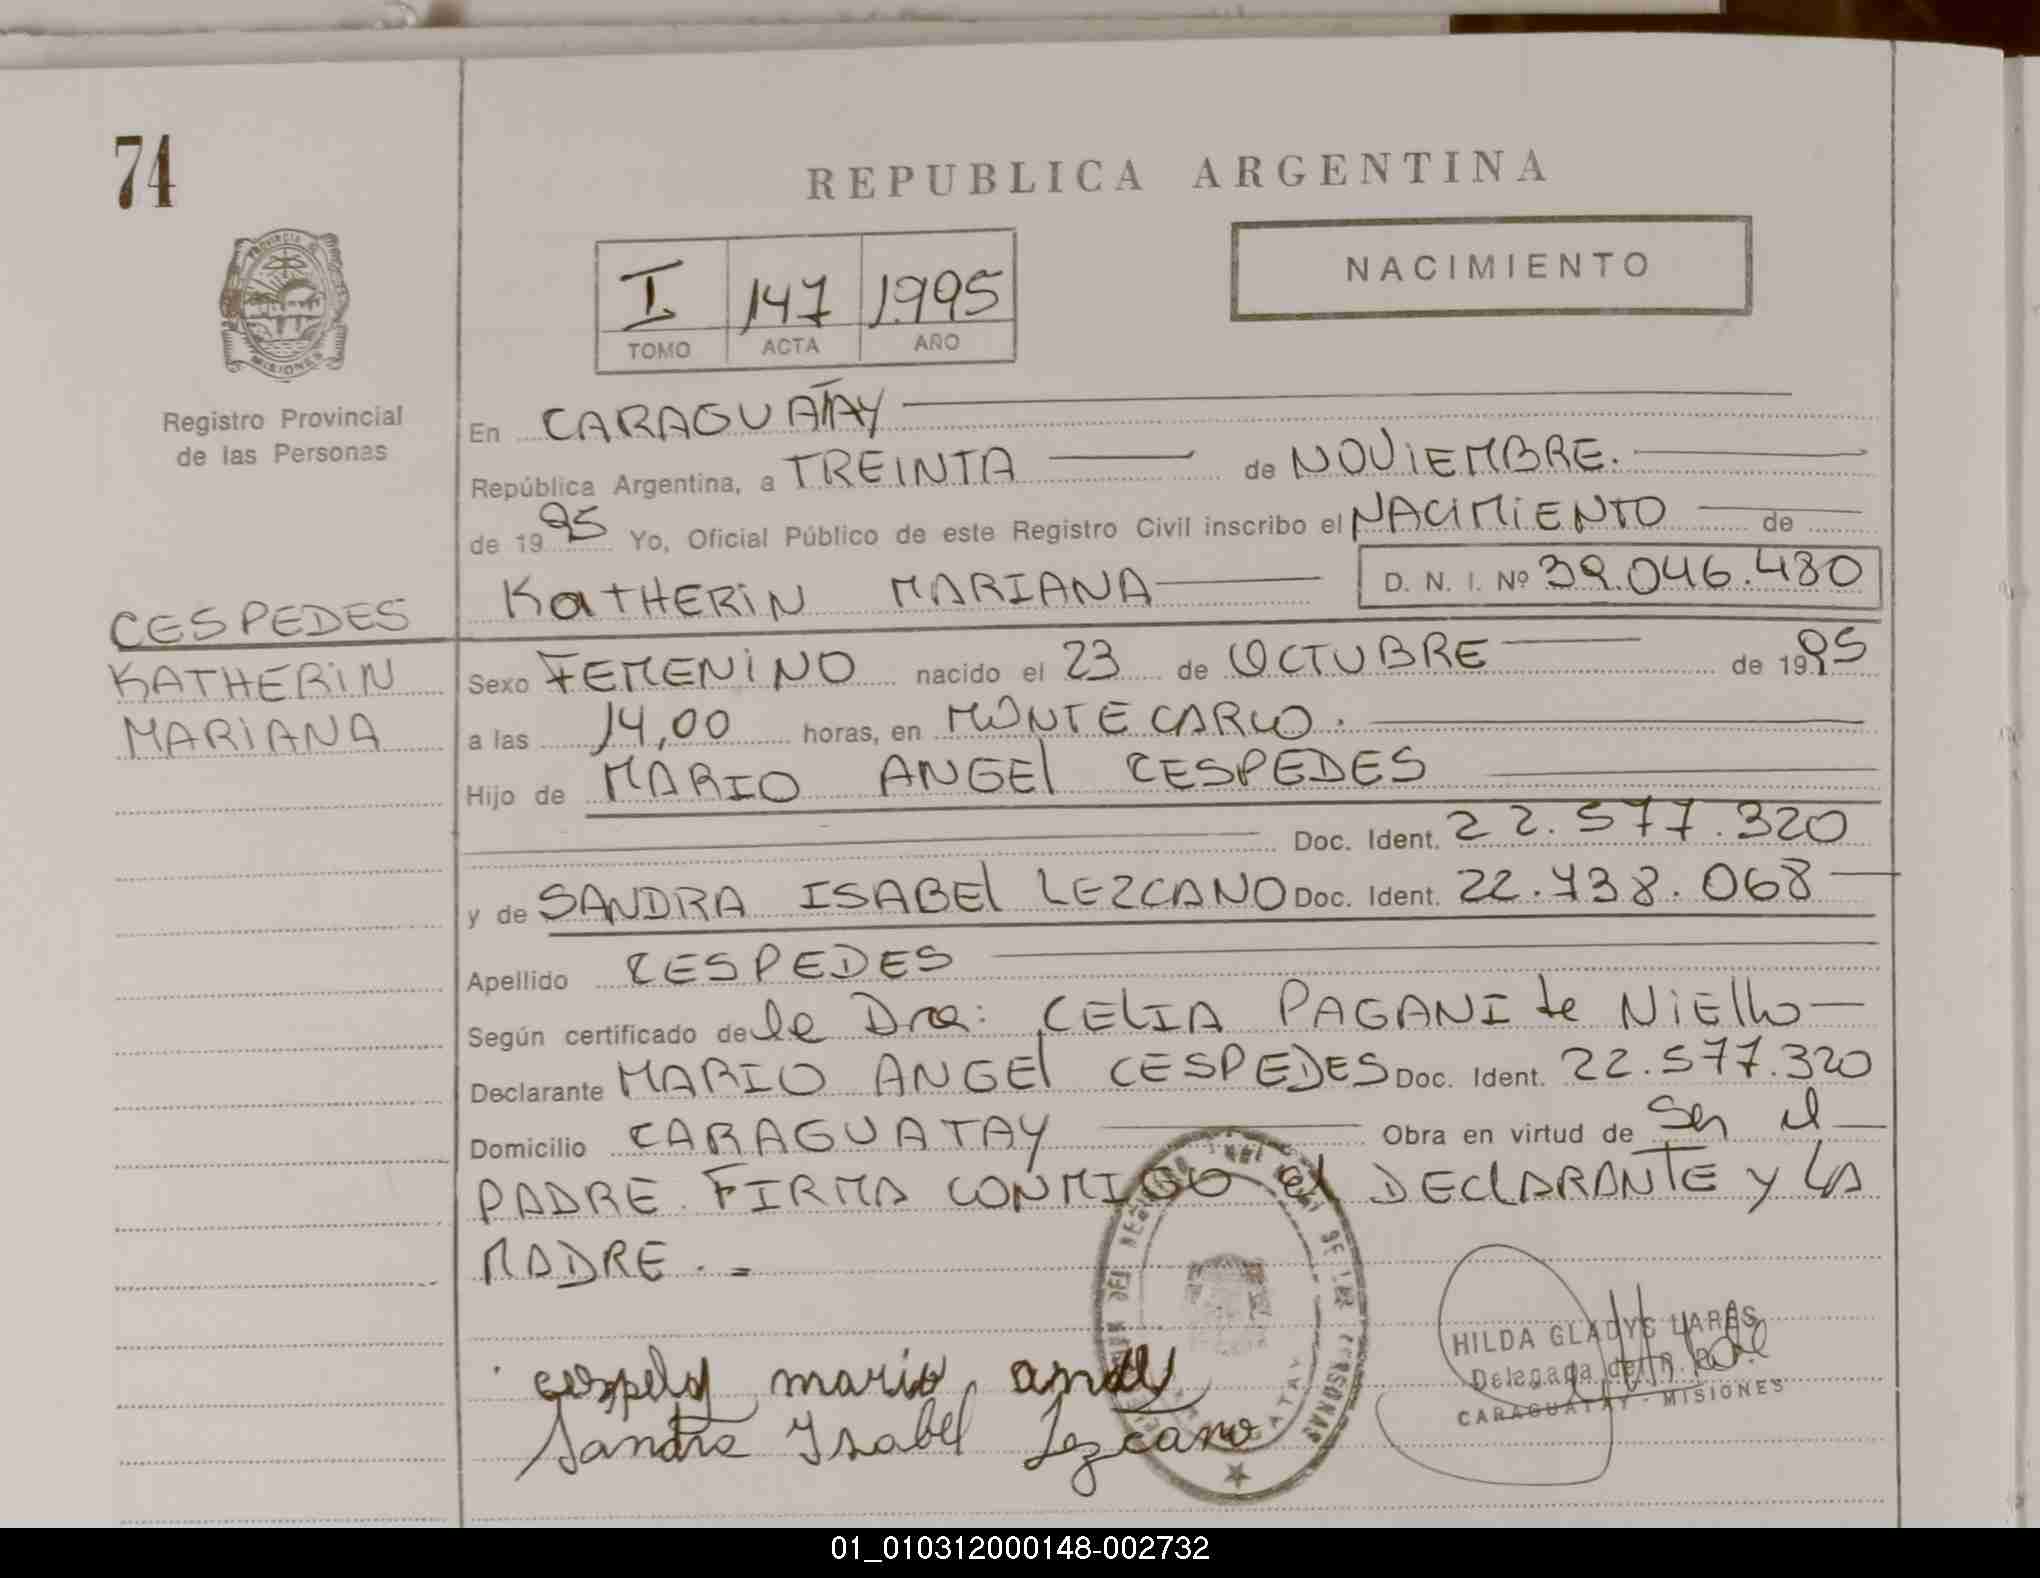 74
REPUBLICA ARGENTINA
Provincia de
MISIONES
I 147 1995
TOMO ACTA AÑO
NACIMIENTO
Registro Provincial
de las Personas
En CARAGUATAY
República Argentina, a TREINTA de NOVIEMBRE.
de 1995 Yo, Oficial Público de este Registro Civil inscribo el NACIMIENTO de
KatHERiN MARIANA D. N. I. Nº 39.046.480
CESPEDES
KATHERiN
MARiANA
Sexo FEMENiNO nacido el 23 de OCTUBRE de 1995
a las 14,00 horas, en MONTECARLO.
Hijo de MARIO ANGEl CESPEDES
Doc. Ident. 22.577.320
y de SANDRA ISABEl LEZCANO Doc. Ident. 22.738.068
Apellido CESPEDES
Según certificado de la Dra: CELIA PAGANI de NiEllo
Declarante MARIO ANGEl CESPEDES Doc. Ident. 22.577.320
Domicilio CARAGUATAY Obra en virtud de Ser el
PADRE. FIRMA CONMIGO el DEClARANTE y LA
MADRE.-
mario
Sandra Isabel Lezcano
HILDA GLADYS
Delegada del R.
CARAGUATAY - MISIONES
01_010312000148-002732